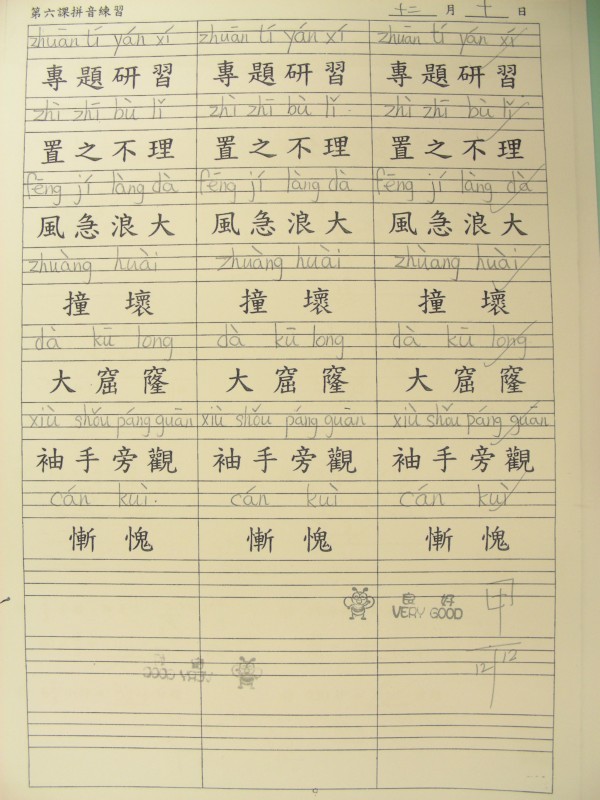 第六課拼音練習 十二 月 十 日
zhuān tí yán xí zhuān tí yán xí zhuān tí yán xí
專題研習 專題研習 專題研習
zhì zhī bù lǐ zhì zhī bù lǐ zhì zhī bù lǐ
置之不理 置之不理 置之不理
fēng jí làng dà fēng jí làng dà fēng jí làng dà
風急浪大 風急浪大 風急浪大
zhuàng huài zhuàng huài zhuàng huài
撞壞 撞壞 撞壞
dà kū long dà kū long dà kū long
大窟窿 大窟窿 大窟窿
xiù shǒu páng guān xiù shǒu páng guān xiù shǒu páng guān
袖手旁觀 袖手旁觀 袖手旁觀
cán kuì. cán kuì cán kuì
慚愧 慚愧 慚愧
良好 甲
VERY GOOD
12/12